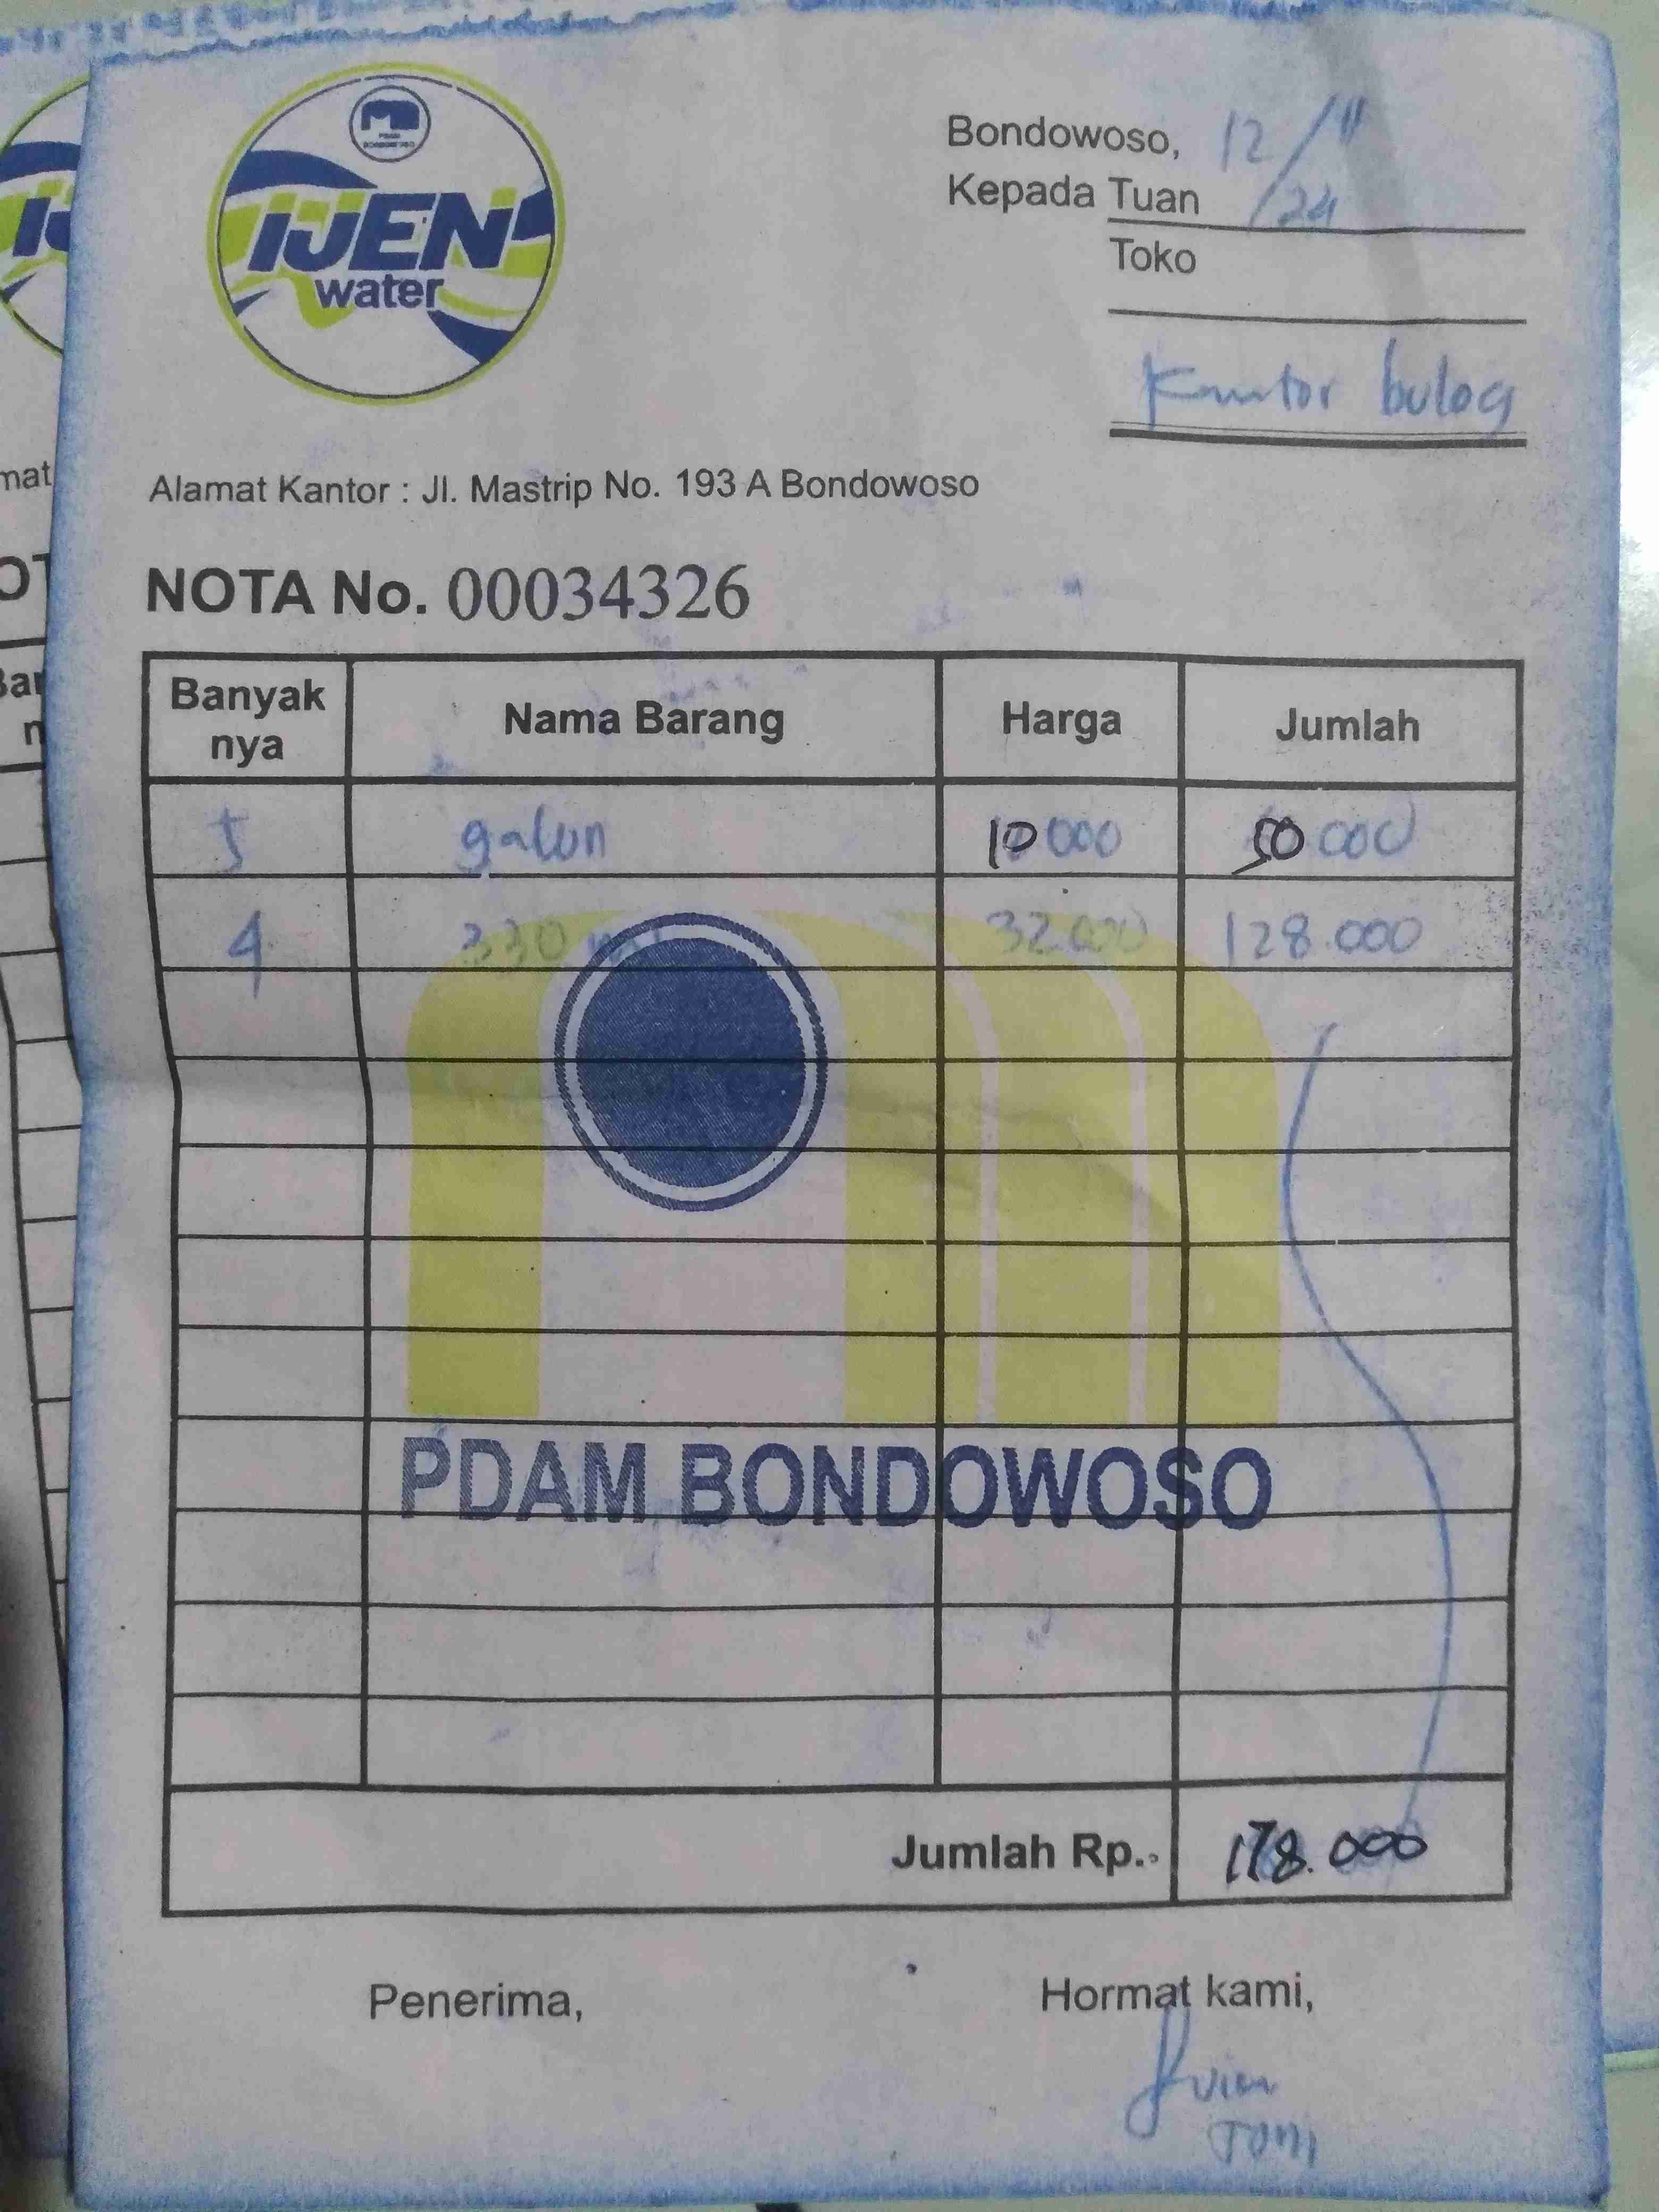 IJEN
water
Bondowoso, 12/11
/24
Kepada Tuan
Toko
Kantor bulog
Alamat Kantor : Jl. Mastrip No. 193 A Bondowoso
NOTA No. 00034326
Banyak nya Nama Barang Harga Jumlah
5 galon 10000 50000
4 330 ml 32.000 128.000
PDAM BONDOWOSO
Jumlah Rp. 178.000
Penerima, Hormat kami,